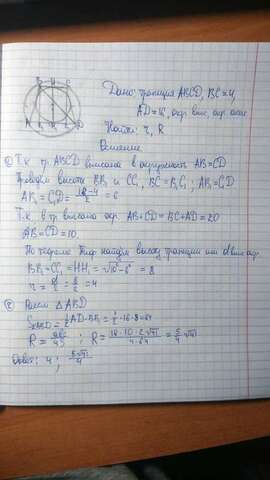 Дано: трапеция ABCD, BC=4,
AD=16, окр. впис, окр. опис
Найти: r, R
Решение
① Т.к тр. ABCD вписана в окружность AB=CD
Проведём высоты BB₁ и CC₁, BC=B₁C₁; AB₁=C₁D
AB₁=C₁D=\frac{16-4}{2}=6
Т.к в тр вписана окр. AB+CD=BC+AD=20
AB=CD=10.
По теореме Пиф найдём высоту трапеции
BB₁=CC₁=HH₁=√10²-6²=8
r=\frac{d}{2}=\frac{8}{2}=4
② Рассм △ABD
S_{ABD}=\frac{1}{2}AD·BB₁=\frac{1}{2}·16·8=64
R=\frac{abc}{4S}; R=\frac{16·10·2√41}{4·64}=\frac{5}{4}√41
Ответ: 4; \frac{5√41}{4}